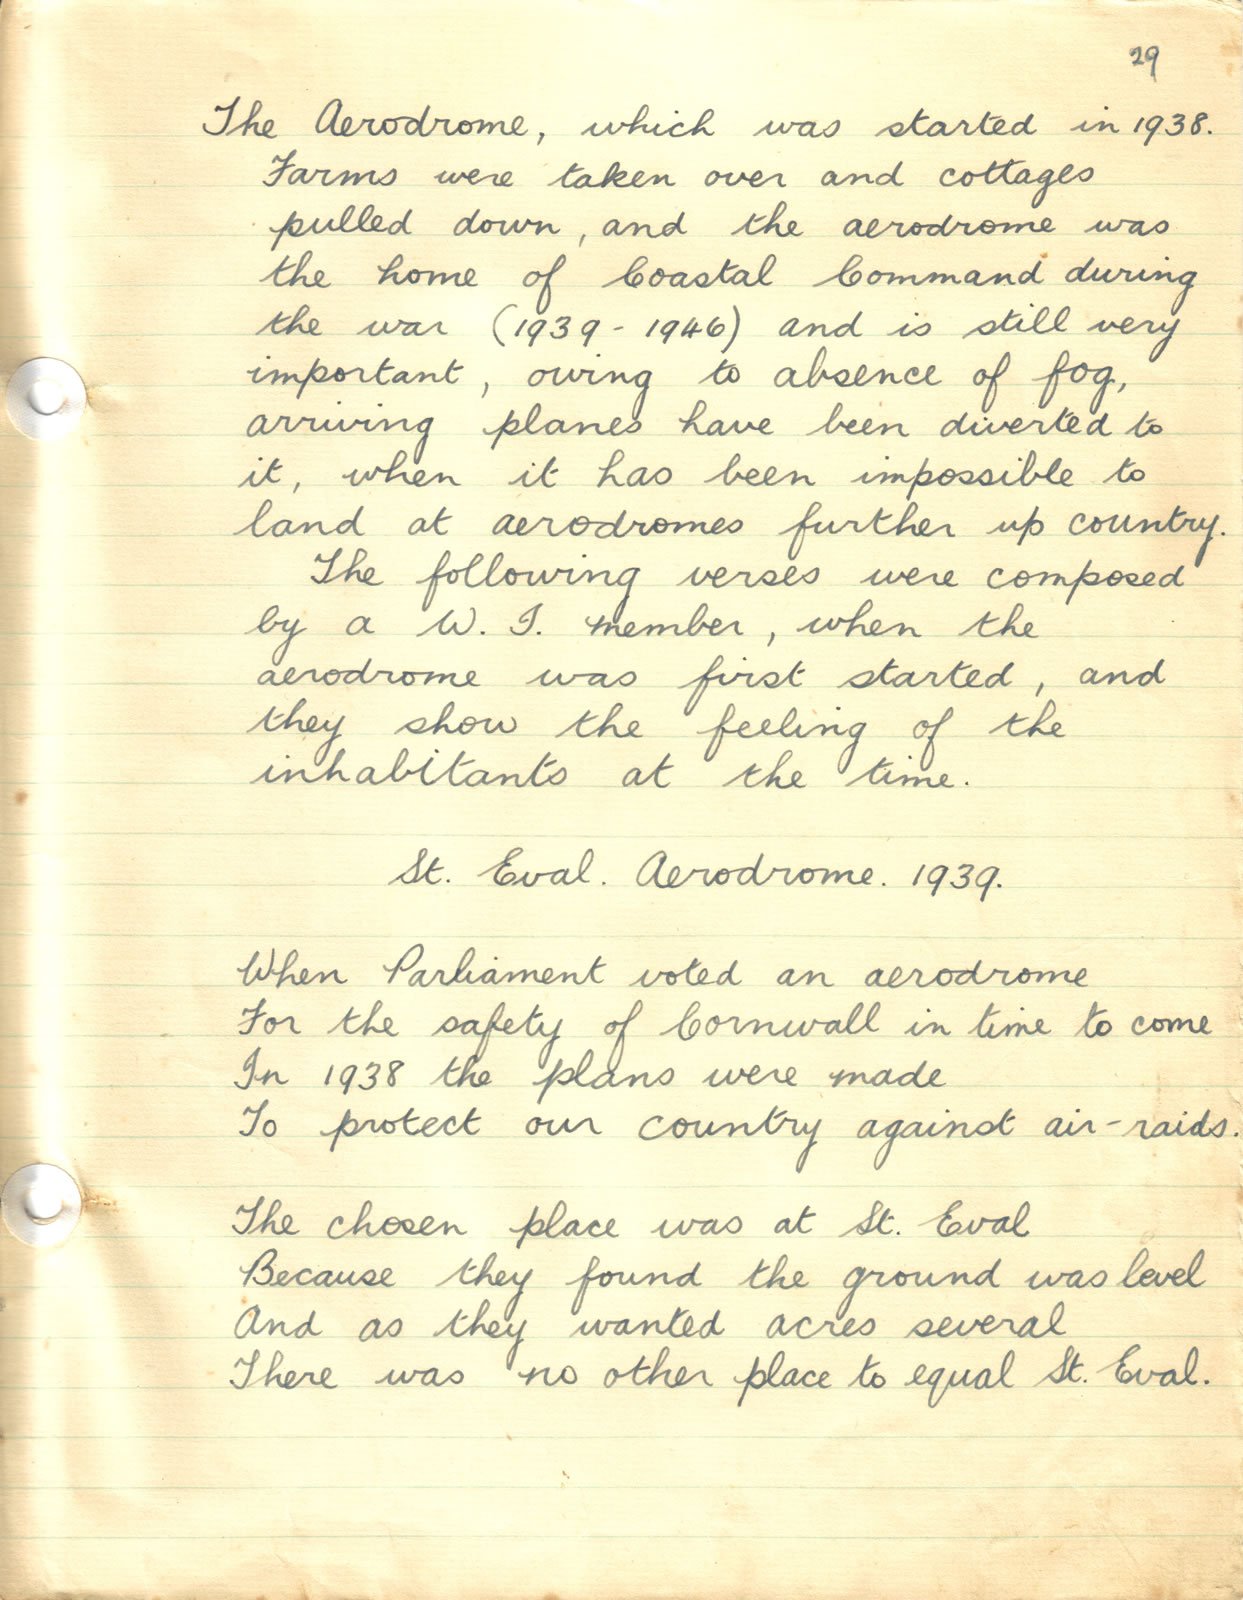 29
The Aerodrome, which was started in 1938.
Farms were taken over and cottages
pulled down, and the aerodrome was
the home of Coastal Command during
the war (1939 - 1946) and is still very
important, owing to absence of fog,
arriving planes have been diverted to
it, when it has been impossible to
land at aerodromes further up country.
The following verses were composed
by a W. I. member, when the
aerodrome was first started, and
they show the feeling of the
inhabitants at the time.
St. Eval. Aerodrome. 1939.
When Parliament voted an aerodrome
For the safety of Cornwall in time to come
In 1938 the plans were made
To protect our country against air-raids.
The chosen place was at St. Eval
Because they found the ground was level
And as they wanted acres several
There was no other place to equal St. Eval.